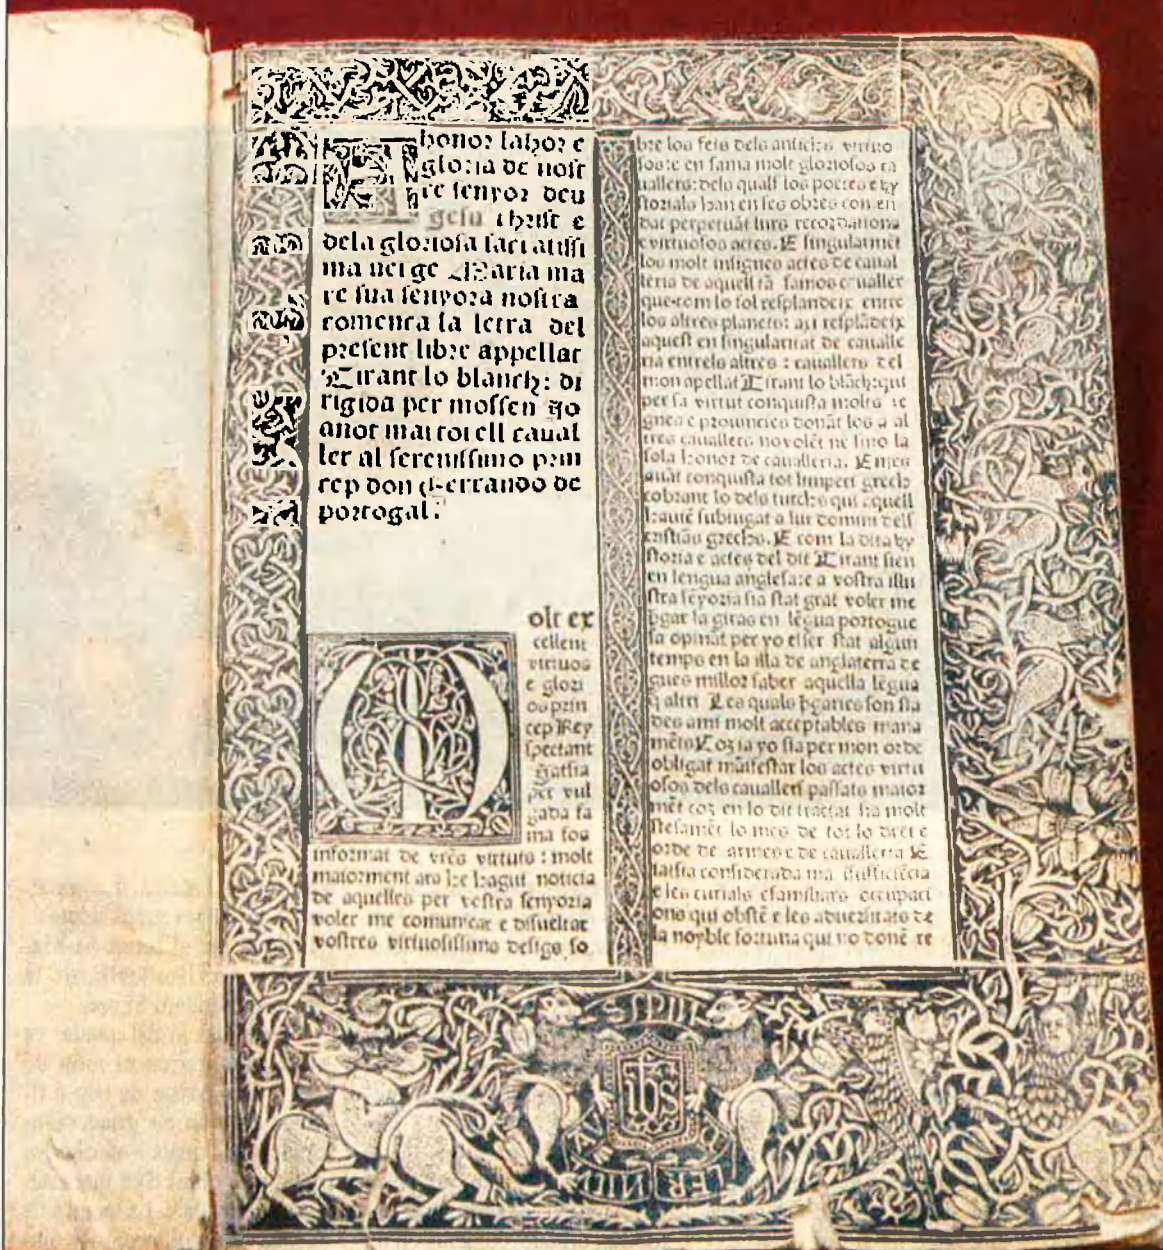 honor lahor e
gloria de nost
re senyor deu
gesu christ e
dela gloriosa sacratissi
ma verge Maria ma
re sua senyora nostra
comença la letra del
present libre appellat
Tirant lo blanch: di
rigida per mossen Jo
anot martorell caual
ler al serenissimo prin
cep don Ferrando de
portogal.
olt ex
cellent
virtuos
e glori
os prin
cep Rey
spectant
per vul
gada fa
ma fos
informat de vr̃es virtuts: molt
maiorment ara he hagut noticia
de aquelles per vostra senyoria
voler me comunicar e disuetlar
vostres virtuosissims desigs so
bre los fets dels antichs virtuo
sos: e en fama molt gloriosos ca
uallers: dels quals los poetes e hy
storials han en ses obres comen
dat perpetuãt lurs recordations
e virtuosos actes. E singularmẽt
los molt insignes actes de caual
leria de aquell tã famos caualler
que com lo sol resplandeix entre
los altres planets: axi resplãdeix
aquest en singularitat de caualle
ria entrels altres: cauallers del
mon apellat Tirant lo blãch: qui
per sa virtut conquista molts re
gnes e prouincies donãt los a al
tres cauallers no volẽt ne sino la
sola honor de caualleria. E mes
auãt conquista tot limperi grech
cobrant lo dels turchs qui aquell
hauiẽ subiugat a lur domini dels
cristiãs grechs. E com la dita hy
storia e actes del dit Tirant sien
en lengua anglesa: e a vostra illu
stra sẽyoria sia stat grat voler me
p̃gar la giras en lẽgua portogue
sa opinãt per yo esser stat algun
temps en la illa de anglaterra de
gues millor saber aquella lẽgua
q̃ altri. Les quals p̃garies son sta
des ami molt acceptables mana
mẽts. E com ja yo sia per mon orde
obligat manifestar los actes virtu
osos dels cauallers passats maior
mẽt com en lo dit tractat sia molt
stesamẽt lo mes de tot lo dret e
orde de armes e de caualleria. E
iatsia considerada ma insuficiẽcia
e les curials e familiars occupaci
ons qui obstẽ e les aduersitats de
la noyble fortuna qui no donẽ re
ihs